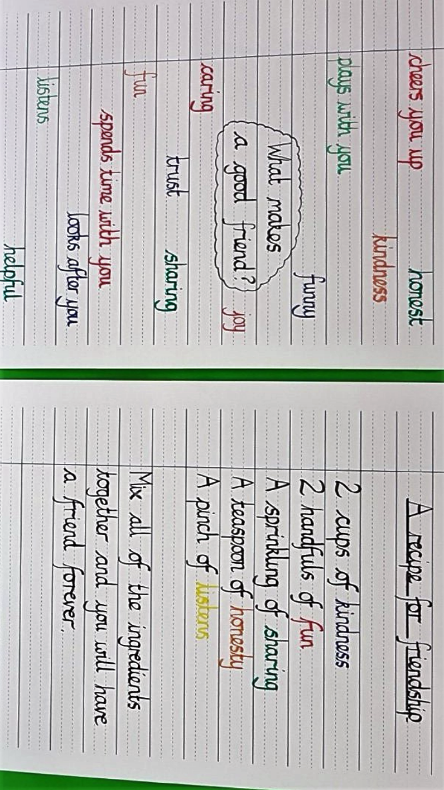 cheers you up
honest
kindness
plays with you
funny
What makes
a good friend?
joy
caring
trust
sharing
fun
spends time with you
looks after you
listens
helpful
A recipe for friendship
2 cups of kindness
2 handfuls of fun
A sprinkling of sharing
A teaspoon of honesty
A pinch of listens
Mix all of the ingredients
together and you will have
a friend forever.